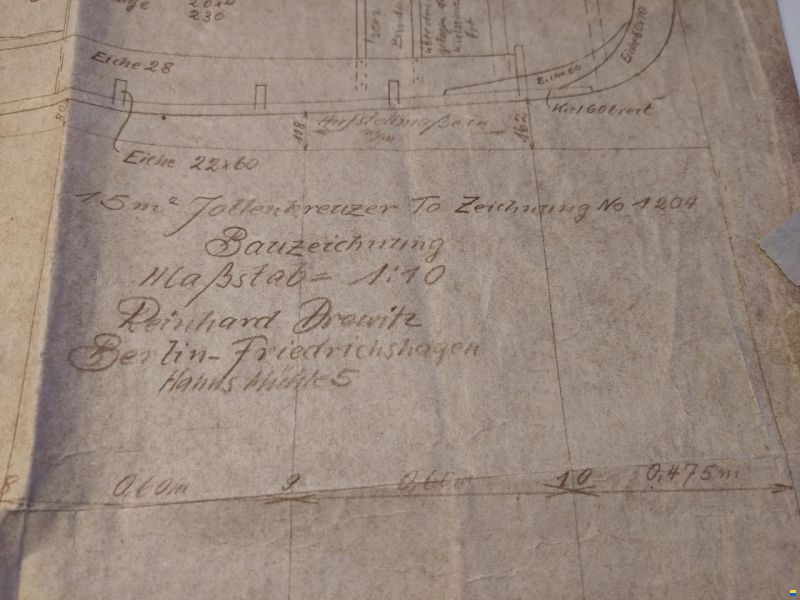 20x
230
Eiche 28
Eiche 60
Eiche 60x70
Kiel 60 breit
118
162
80
Eiche 22x60
15m² Jollenkreuzer To Zeichnung No 1204
Bauzeichnung
Maßstab = 1:10
Reinhard Drewitz
Berlin-Friedrichshagen
Hanns Mühle 5
8
0,60m
9
0,60m
10
0,475m